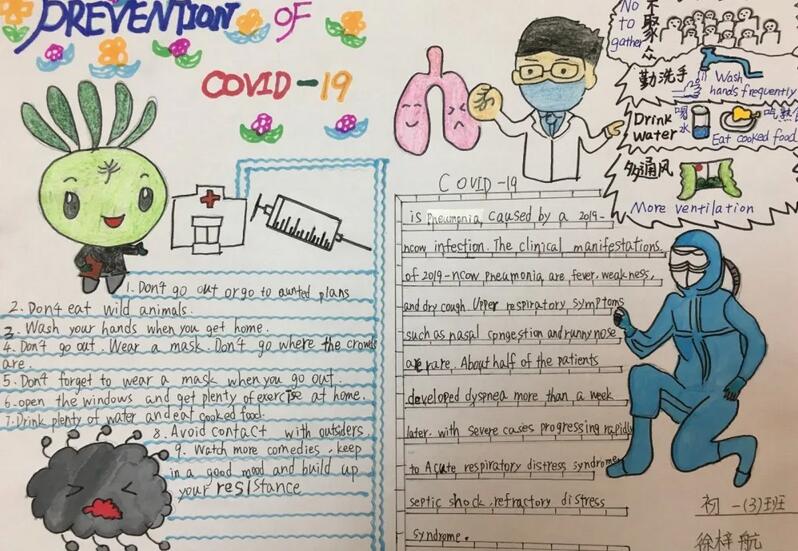 PREVENTION OF
COVID-19
1. Don't go out or go to aunted plans
2. Don't eat wild animals.
3. Wash your hands when you get home.
4. Don't go out. Wear a mask. Don't go where the crowds
are.
5. Don't forget to wear a mask when you go out.
6. open the windows and get plenty of exercise at home.
7. Drink plenty of water and eat cooked food.
8. Avoid contact with outsiders.
9. Watch more comedies, keep
in a good mood and build up
your resistance
COVID-19
is Pneumonia, caused by a 2019-
ncow infection. The clinical manifestations.
of 2019-ncow pneumonia are fever, weakness,
and dry cough. Upper respiratory symptoms
such as nasal congestion and runny nose
are rare. About half of the patients
developed dyspnea more than a week
later, with severe cases progressing rapidly
to Acute respiratory distress syndrome,
septic shock, refractory distress
syndrome.
No to gather
不聚众
勤洗手
Wash
hands frequently
Drink
water
喝水
吃熟
Eat cooked food
多通风
More ventilation
初一(3)班
徐梓航